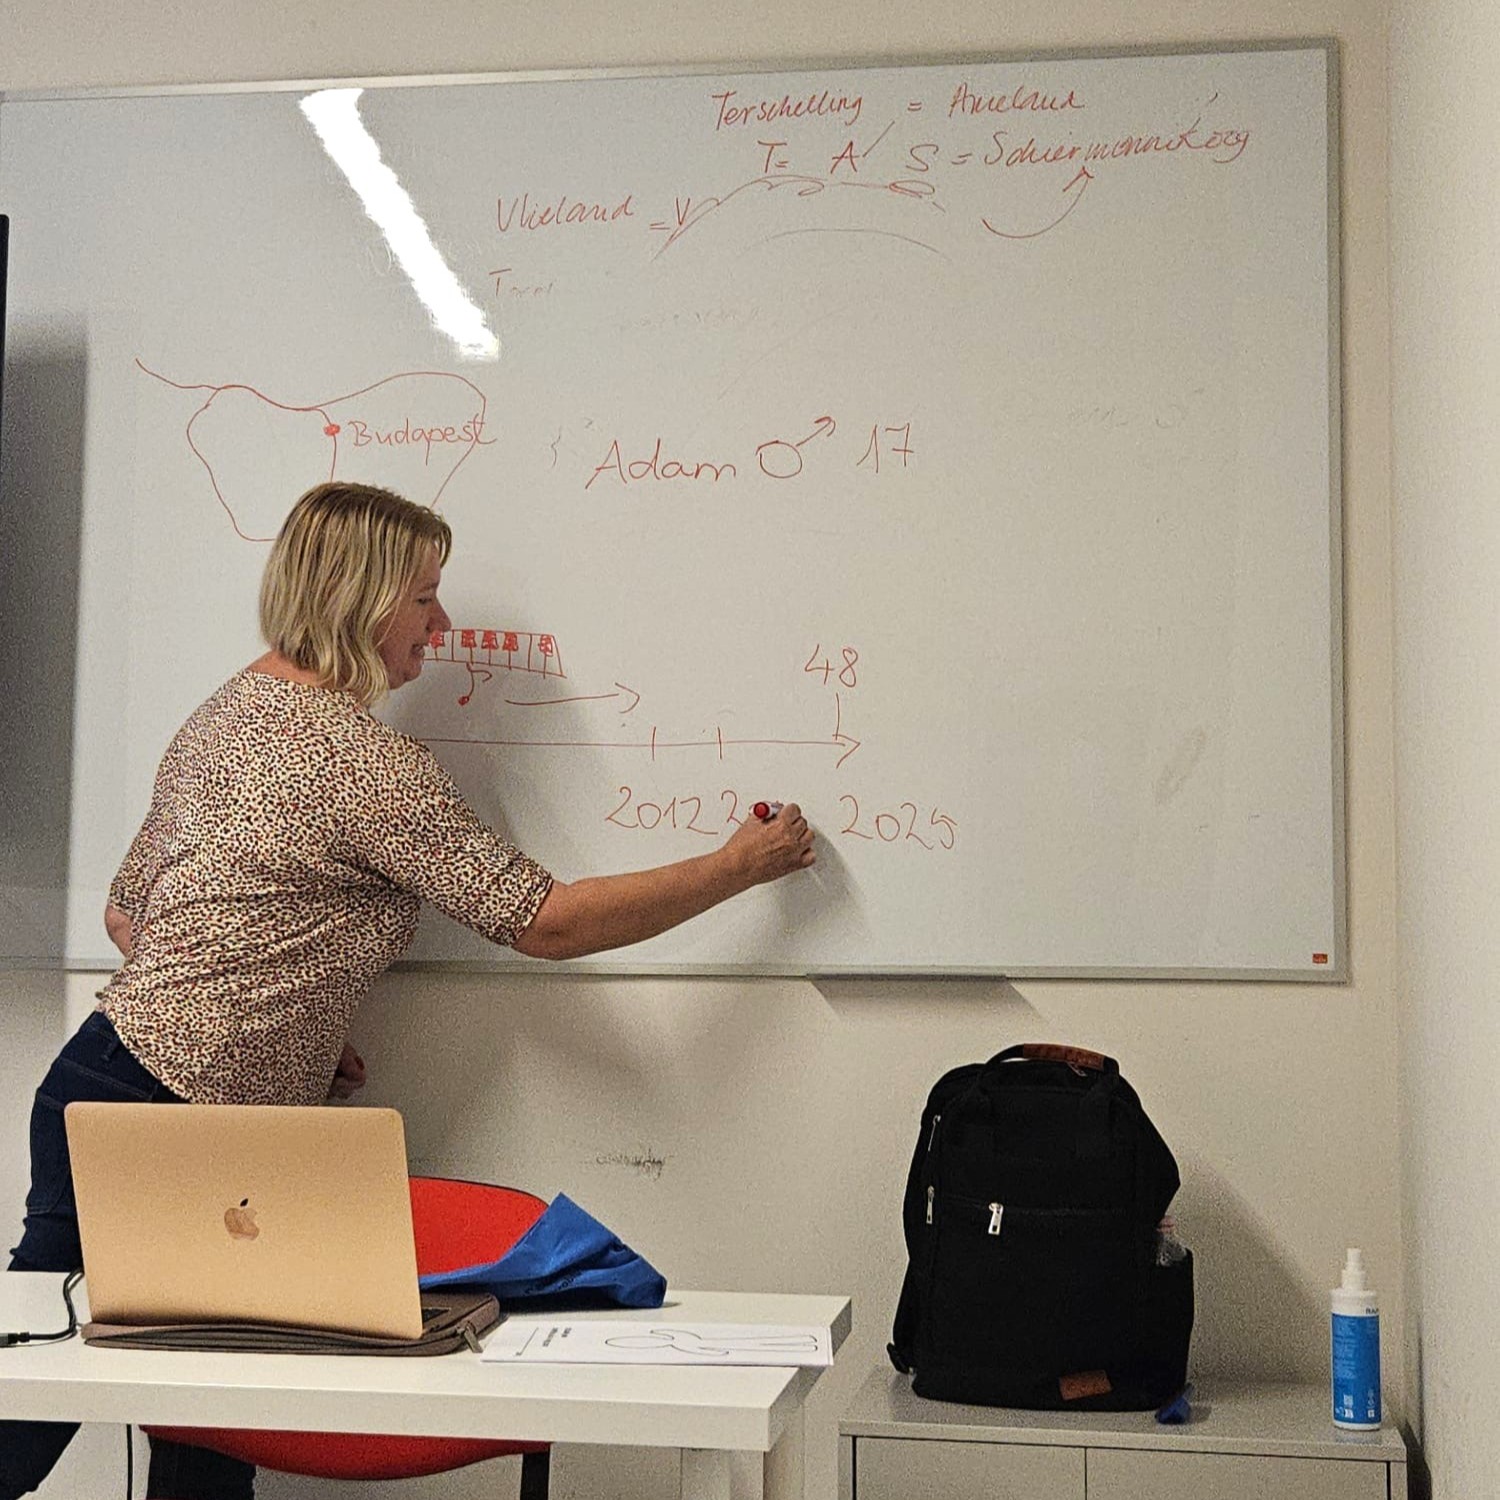 Terschelling = Ameland
T= A S = Schiermonnikoog
Vlieland = V
Budapest
Adam ♂ 17
48
2012 2 2025